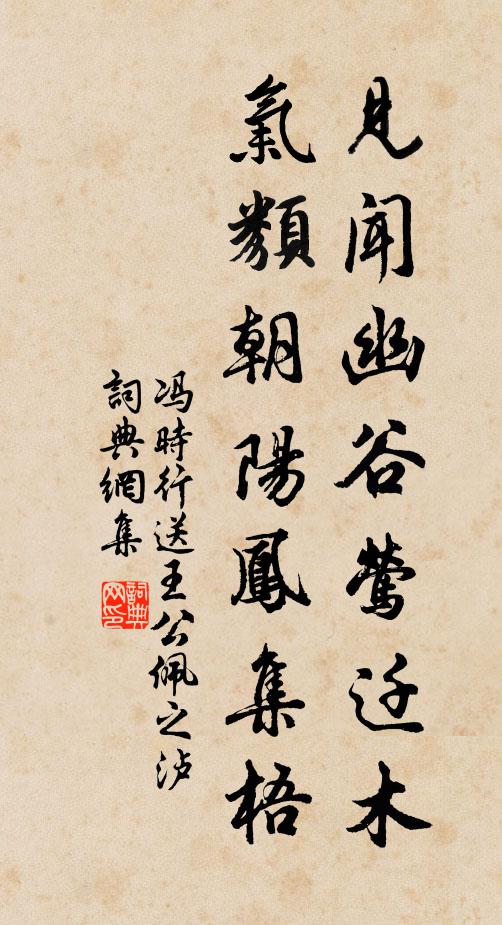 見聞幽谷鶯迁木
氣類朝陽鳳集梧
冯時行送王公佩之泸
詞典網集
詞典网印